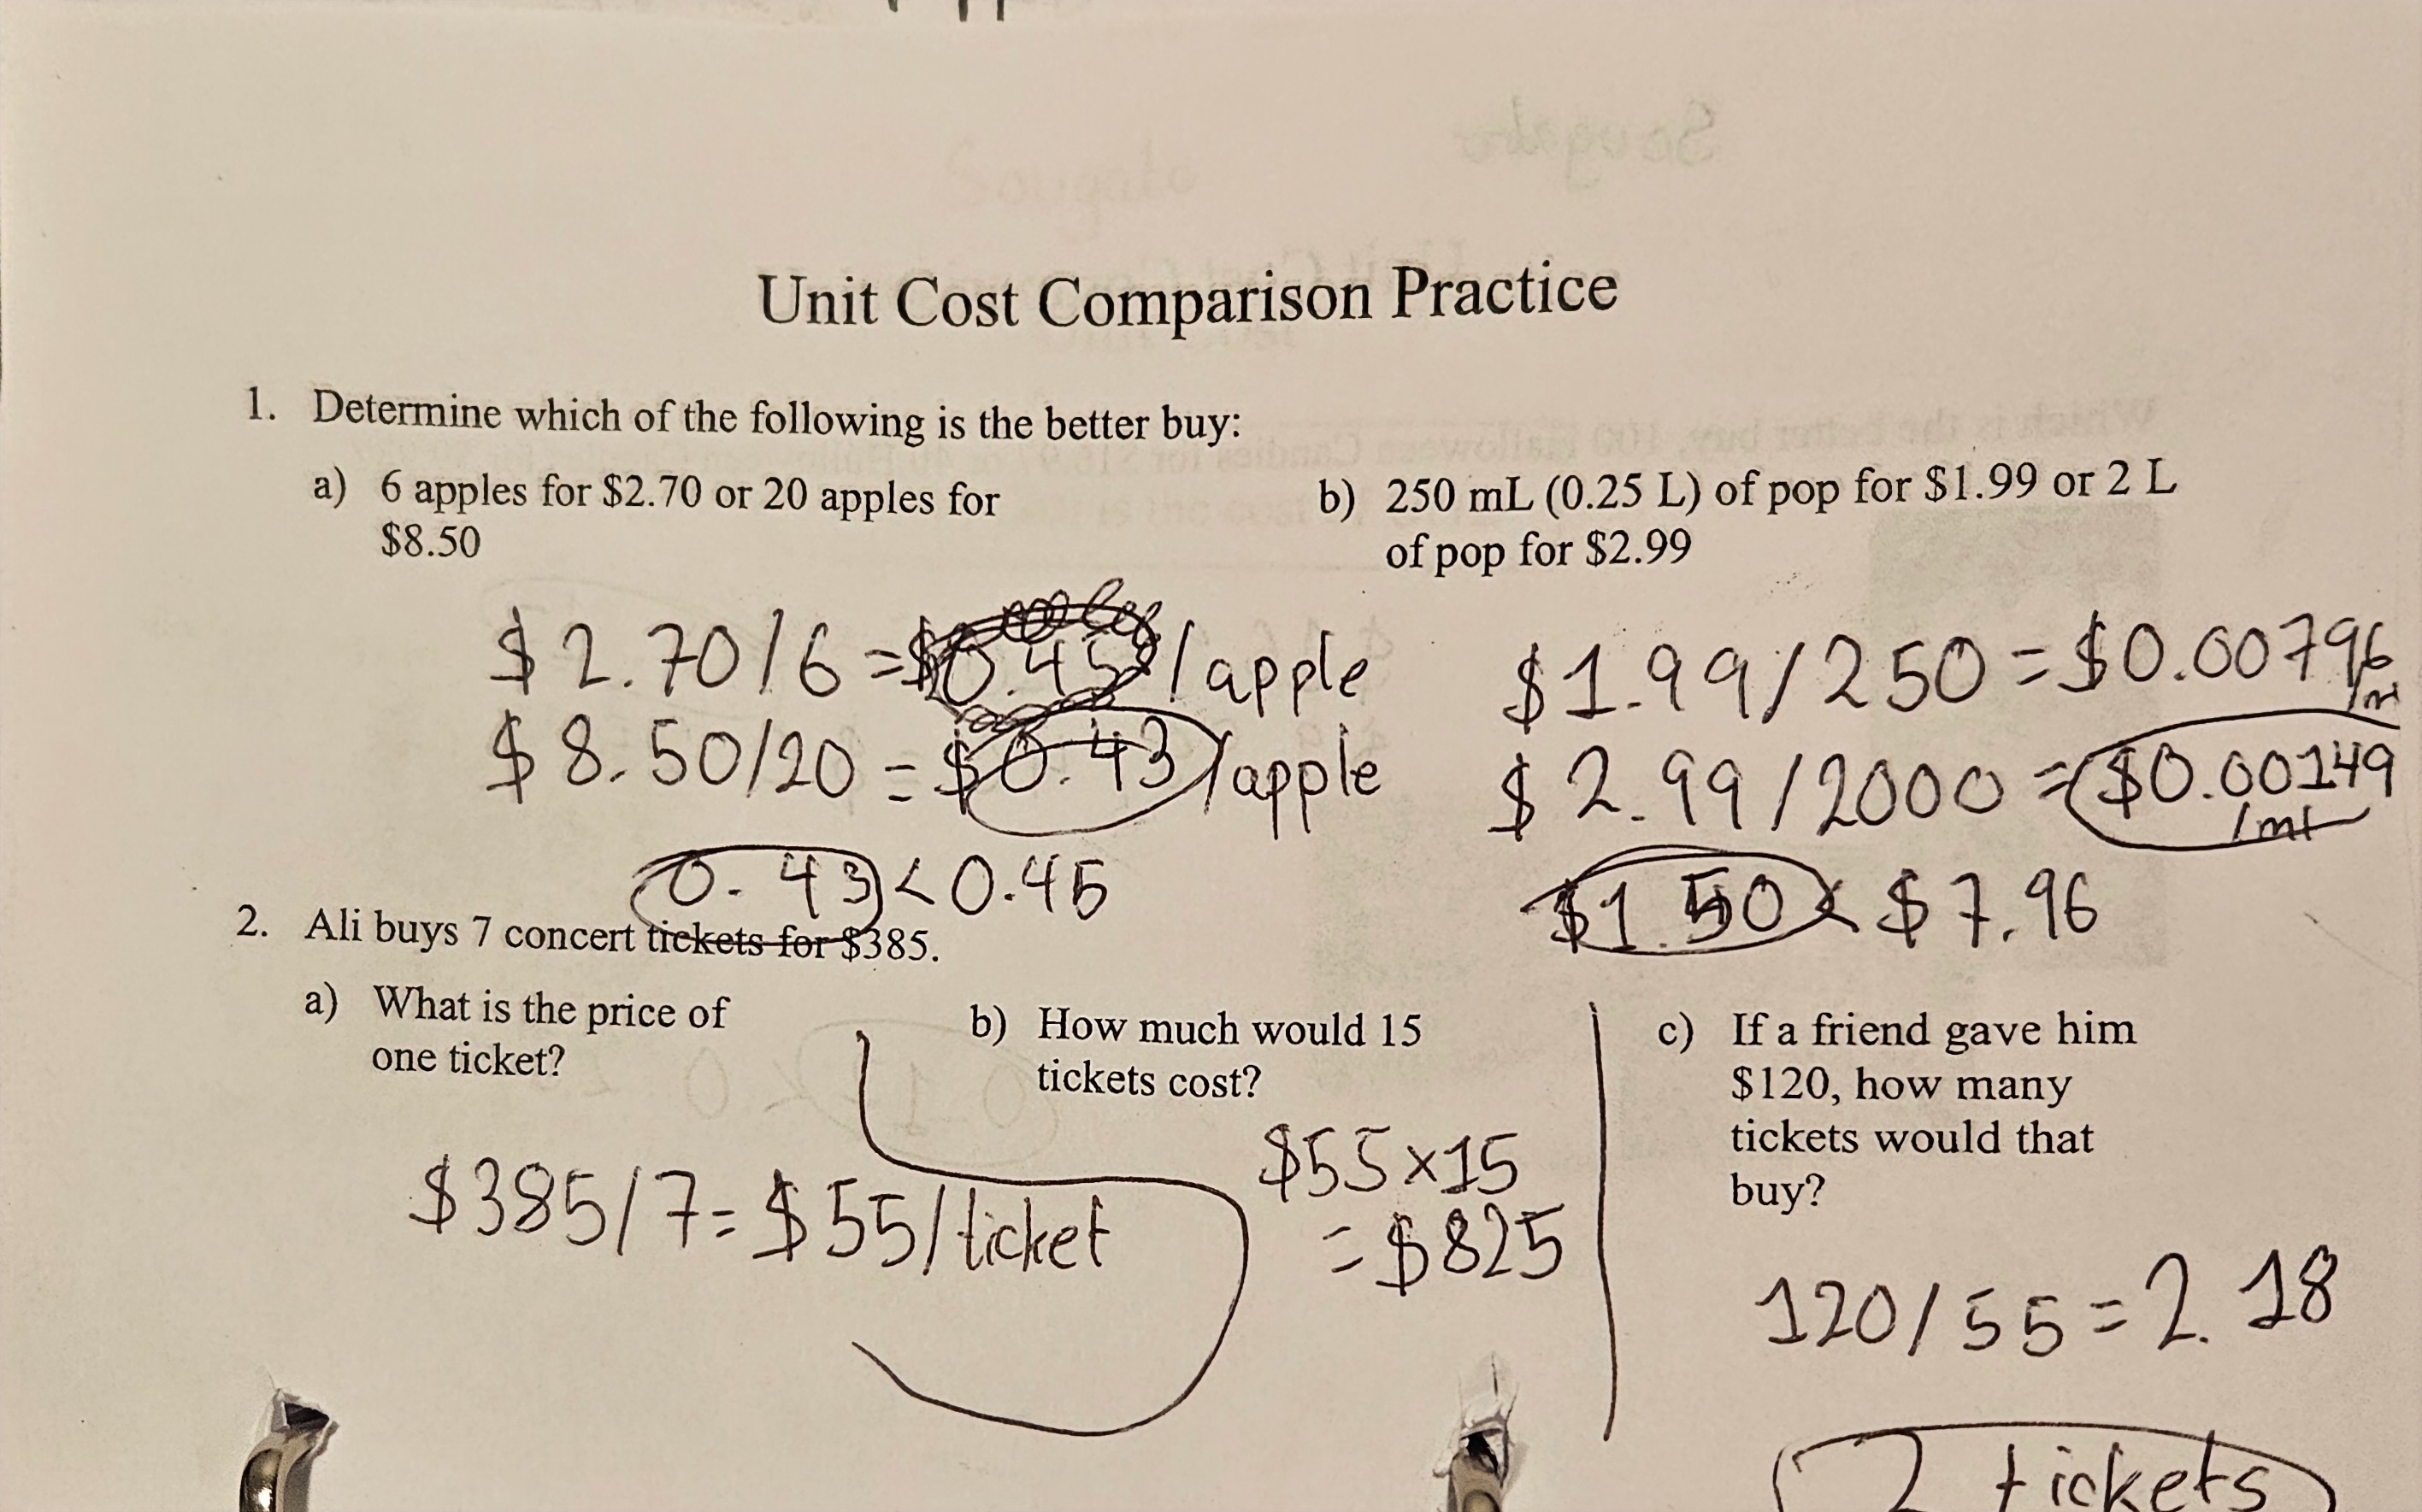 Unit Cost Comparison Practice
1. Determine which of the following is the better buy:
a) 6 apples for $2.70 or 20 apples for
$8.50
$2.70/6 = $0.45/apple
$8.50/20 = $0.43/apple
0.43 < 0.45
b) 250 mL (0.25 L) of pop for $1.99 or 2 L
of pop for $2.99
$1.99/250 = $0.00796
/m
$2.99/2000 = $0.00149
/ml
$1.50 < $7.96
2. Ali buys 7 concert tickets for $385.
a) What is the price of
one ticket?
$385/7 = $55/ticket
b) How much would 15
tickets cost?
$55 x 15
= $825
c) If a friend gave him
$120, how many
tickets would that
buy?
120/55 = 2.18
2 tickets